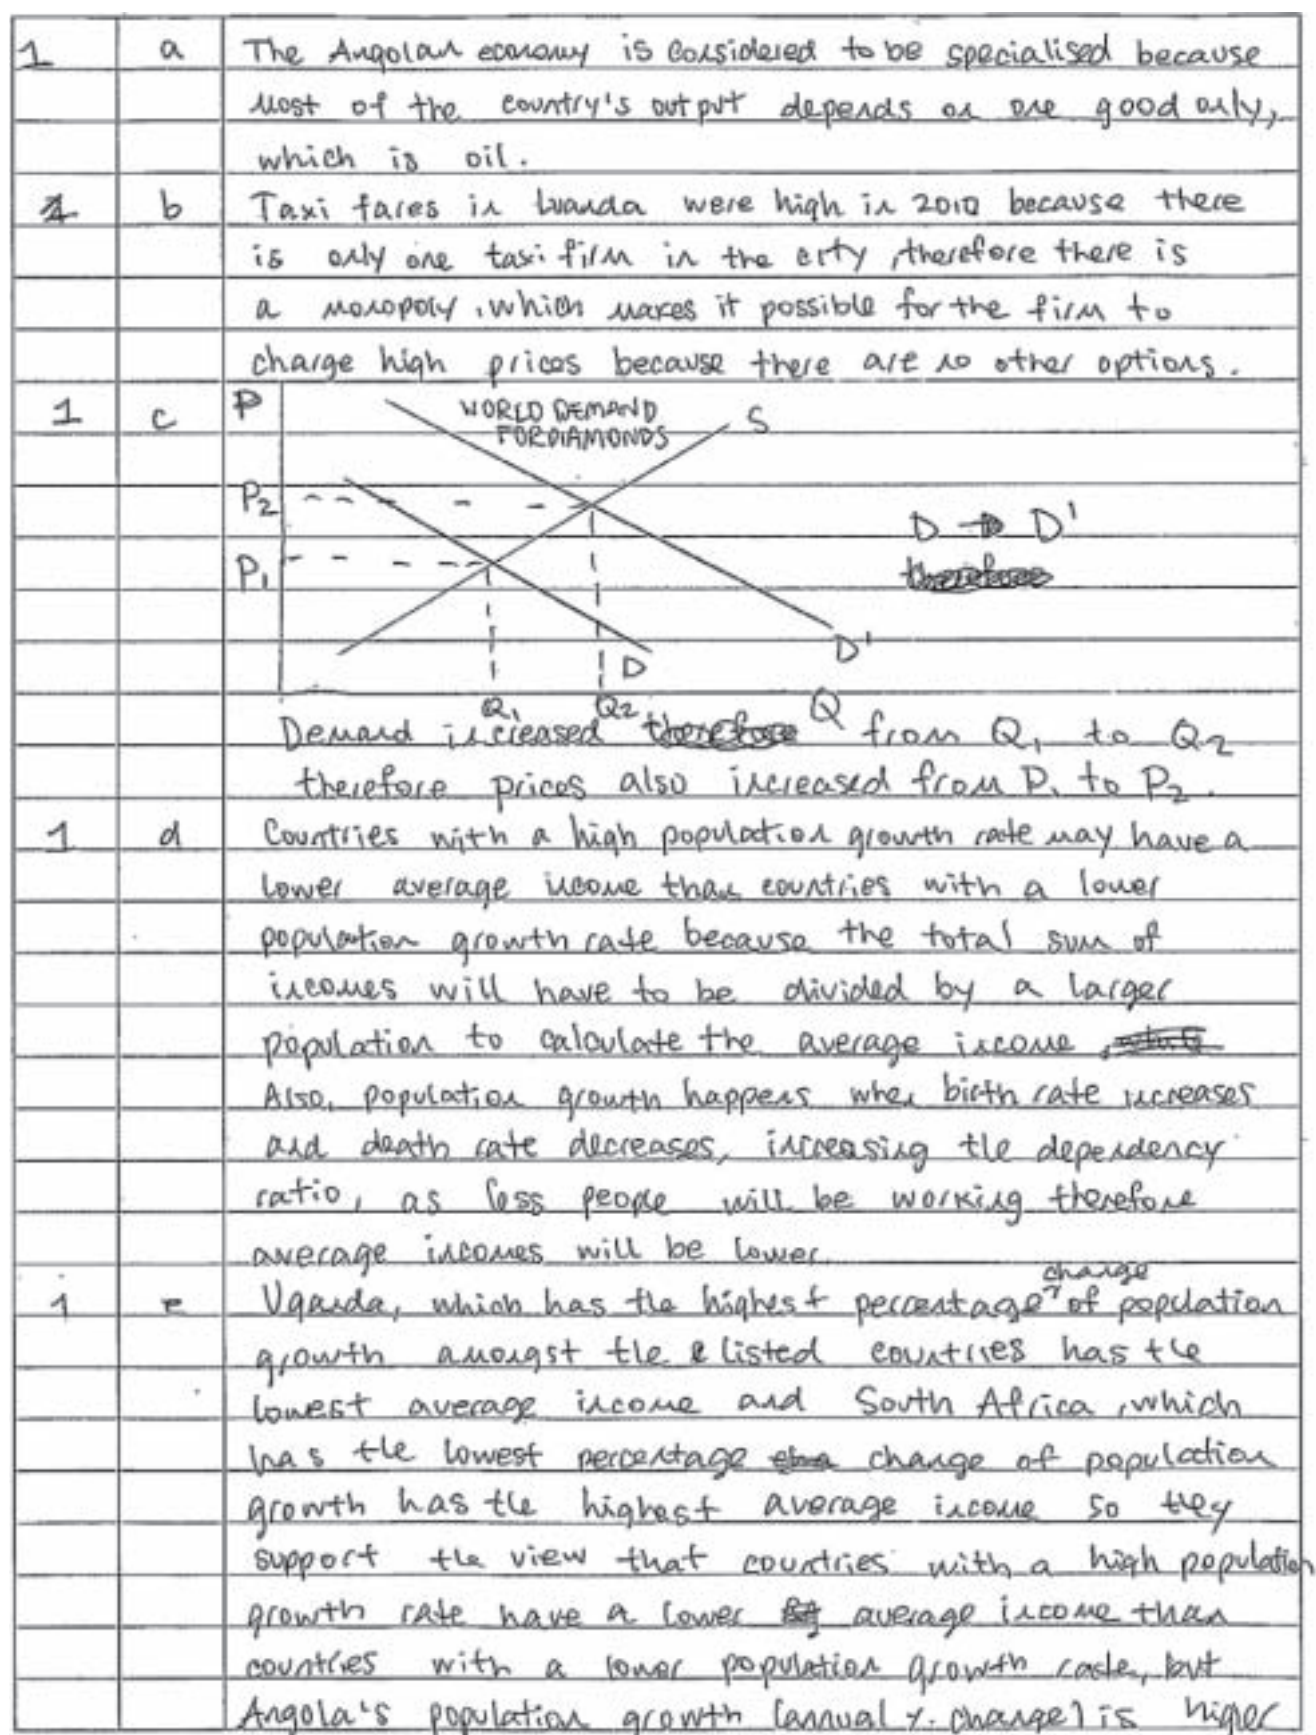 1 a The Angolan economy is considered to be specialised because
most of the country's output depends on one good only,
which is oil.
1 b Taxi fares in Luanda were high in 2010 because there
is only one taxi firm in the city, therefore there is
a monopoly, which makes it possible for the firm to
charge high prices because there are no other options.
1 c P WORLD DEMAND S
FOR DIAMONDS
P2
D → D'
P1 therefore
D D'
Q1 Q2 Q
Demand increased therefore from Q1 to Q2
therefore prices also increased from P1 to P2.
1 d Countries with a high population growth rate may have a
lower average income than countries with a lower
population growth rate because the total sum of
incomes will have to be divided by a larger
population to calculate the average income,
Also, population growth happens when birth rate increases
and death rate decreases, increasing the dependency
ratio, as less people will be working therefore
average incomes will be lower.
change
1 e Uganda, which has the highest percentage of population
growth amongst the listed countries has the
lowest average income and South Africa, which
has the lowest percentage change of population
growth has the highest average income so they
support the view that countries with a high population
growth rate have a lower average income than
countries with a lower population growth rate, but
Angola's population growth (annual %. change) is higher